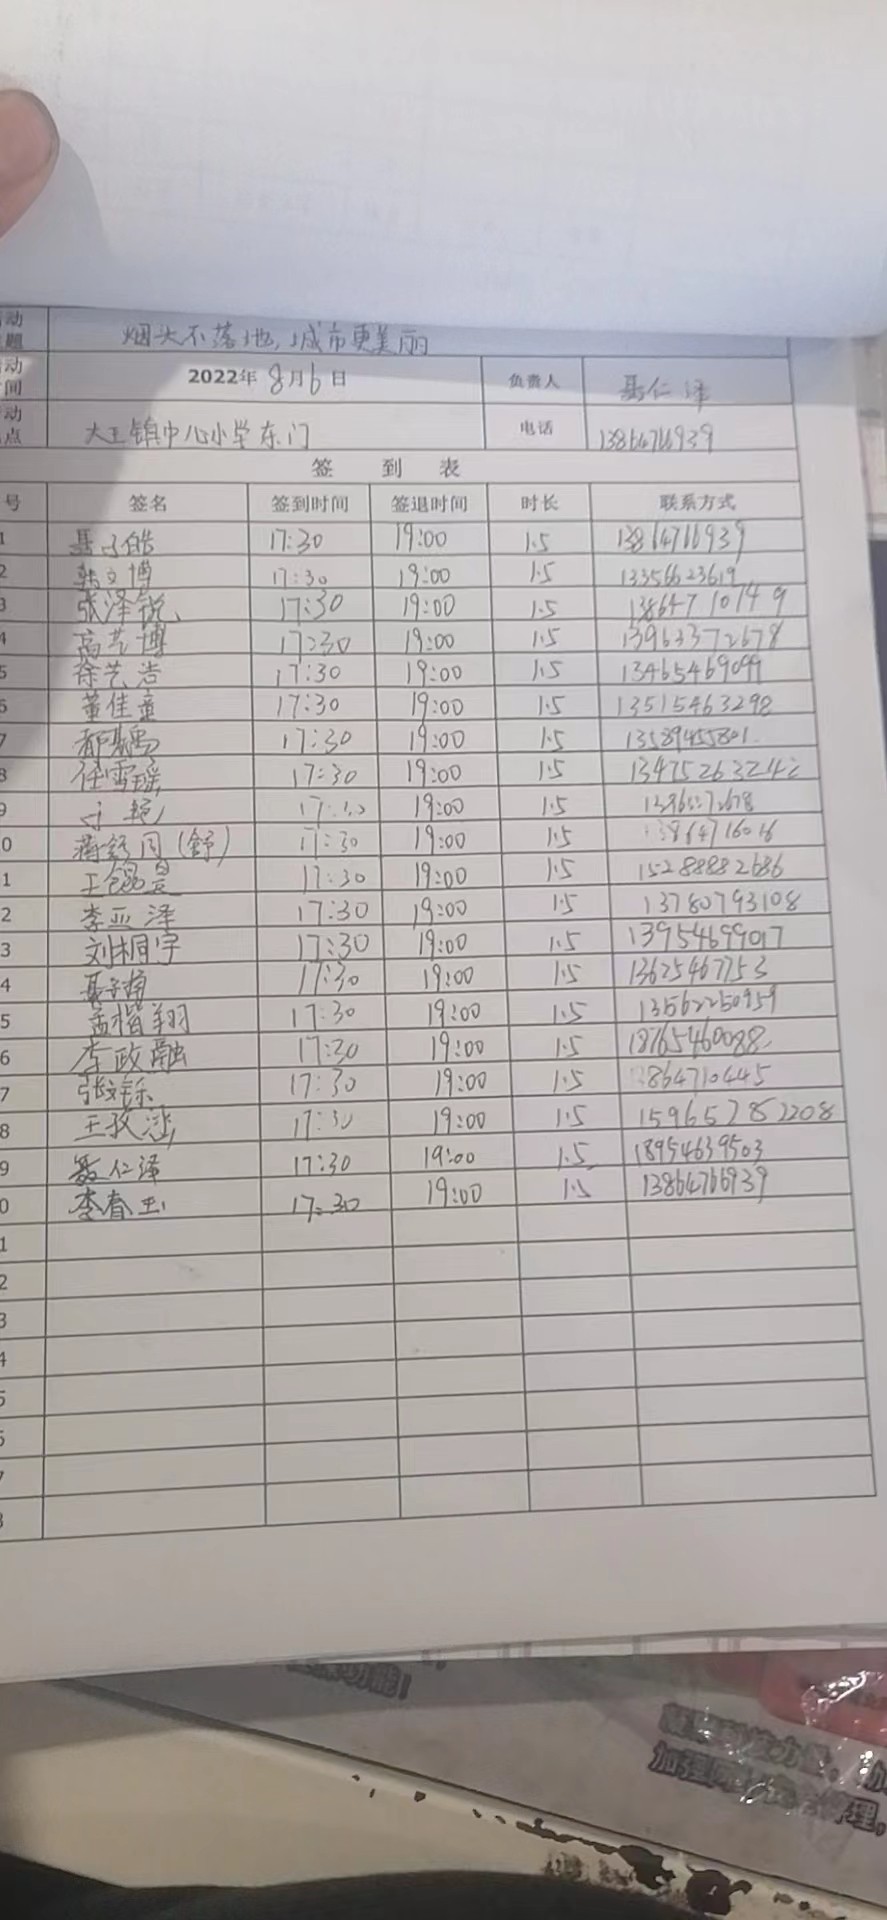 动 烟头不落地,城市更美丽
题
动 2022年8月6日 负责人 聂仁泽
间
动 大王镇中心小学东门 电话 13864766939
点
签 到 表
号 签名 签到时间 签退时间 时长 联系方式
1 17:30 19:00 1.5 13864766939
2 韩文博 17:30 19:00 1.5 13356623619
3 张泽锐 17:30 19:00 1.5 13864710749
4 高艺博 17:30 19:00 1.5 13963372678
5 徐艺浩 17:30 19:00 1.5 13465469099
6 董佳童 17:30 19:00 1.5 13515463298
7 17:30 19:00 1.5 13589455801
8 任雪瑶 17:30 19:00 1.5
9 19:00 1.5
0 蒋舒同(舒) 17:30 19:00 1.5
1 17:30 19:00 1.5 15288882686
2 李亚泽 17:30 19:00 1.5 13780793108
3 刘桐宇 17:30 19:00 1.5 13954699017
4 17:30 19:00 1.5 13625467753
5 孟楷翔 17:30 19:00 1.5 13562250959
6 李政融 17:30 19:00 1.5 18765460088
7 17:30 19:00 1.5 3864710445
8 17:30 19:00 1.5 15965282208
9 聂仁泽 17:30 19:00 1.5 18954639503
0 李春玉 17:30 19:00 1.5 13864766939
1
2
3
4
5
6
7
8
功能!
加强
管理,